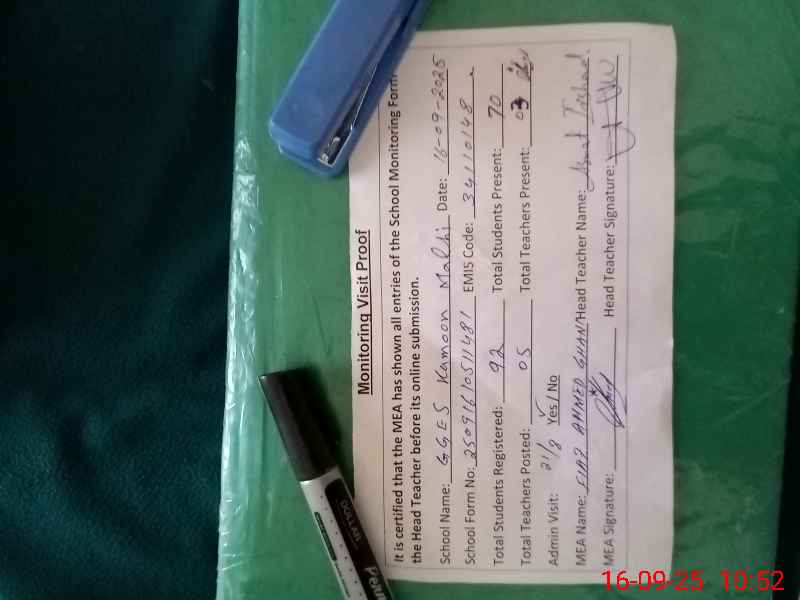 Monitoring Visit Proof
It is certified that the MEA has shown all entries of the School Monitoring Form
the Head Teacher before its online submission.
School Name: GGES Kamoon Malhi Date: 16-09-2025
School Form No: 25091610511481 EMIS Code: 34110148
Total Students Registered: 92 Total Students Present: 70
Total Teachers Posted: 05 Total Teachers Present: 03
Admin Visit: 21/8 Yes / No
MEA Name: FIAZ AHMED GHANI Head Teacher Name: Asmat Irshad
MEA Signature: Head Teacher Signature:
DOLLAR
16-09-25 10:52